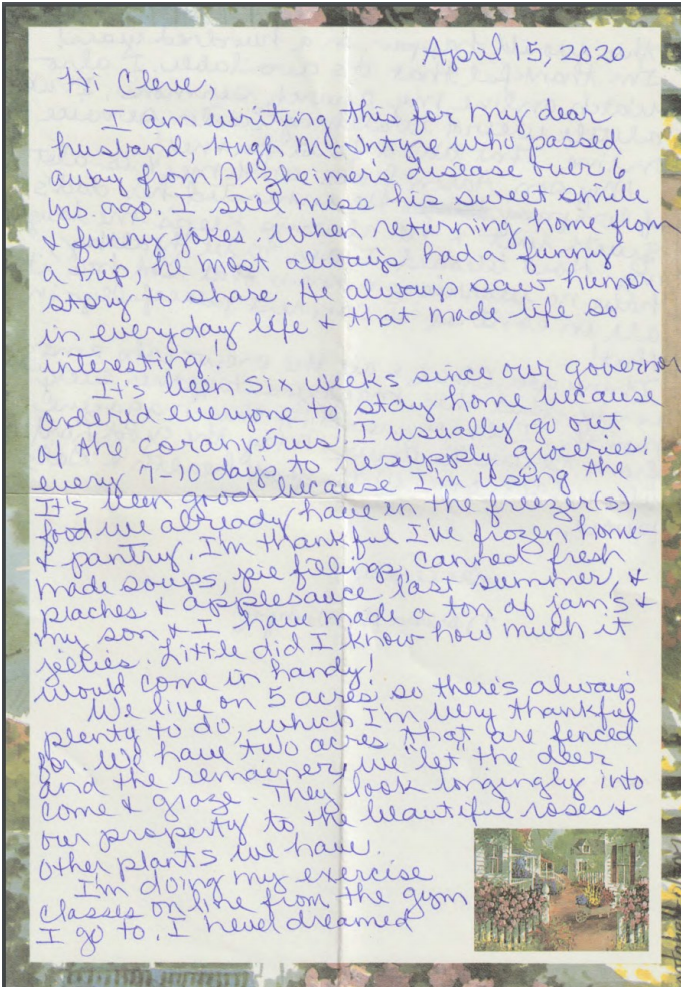 April 15, 2020
Hi Cleve,
I am writing this for my dear
husband, Hugh McIntyre who passed
away from Alzheimer's disease over 6
yrs. ago. I still miss his sweet smile
& funny jokes. When returning home from
a trip, he most always had a funny
story to share. He always saw humor
in everyday life & that made life so
interesting.
It's been six weeks since our governor
ordered everyone to stay home because
of the coranvirus. I usually go out
every 7-10 days to resupply groceries.
It's been good because I'm using the
food we already have in the freezer(s),
& pantry. I'm thankful I've frozen home-
made soups, pie fillings, canned fresh
peaches & applesauce last summer, &
my son & I have made a ton of jams &
jellies. Little did I know how much it
would come in handy!
We live on 5 acres so there's always
plenty to do, which I'm very thankful
for. We have two acres that are fenced
and the remainer, we "let" the deer
come & graze. They look longingly into
our property to the beautiful roses &
other plants we have.
I'm doing my exercise
classes online from the gym
I go to. I never dreamed